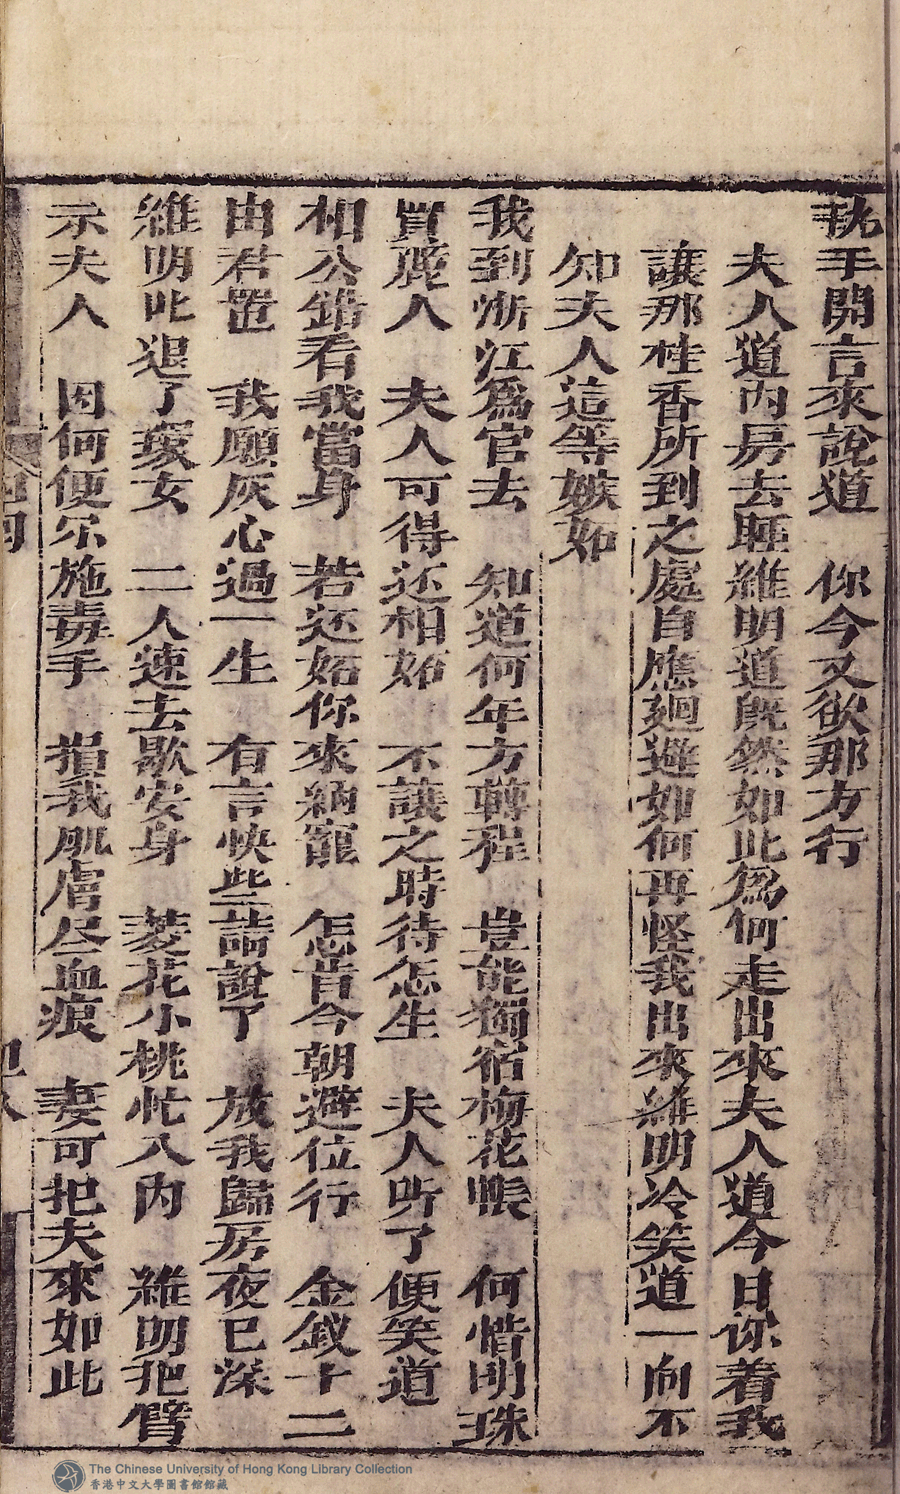 執手開言來說道　你今又欲那方行
夫人道內房去睡維明道既然如此為何走出來夫人道今日你着我
讓那桂香所到之處自應廻避如何再怪我出來維明冷笑道一向不
知夫人這等嫉妬
我到浙江為官去　知道何年方轉程　豈能獨宿梅花帳　何惜明珠
買麗人　夫人可得还相妬　不讓之時待怎生　夫人听了便笑道
相公錯看我當身　若还妬你來納寵　怎肯今朝避位行　金釵十二
由君置　我願灰心過一生　有言快些請說了　放我歸房夜已深
維明叱退了環女　二人速去歇安身　菱花小桃忙入內　維明把臂
示夫人　因何便尔施毒手　損我肌膚尽血痕　妻可把夫來如此
The Chinese University of Hong Kong Library Collection
香港中文大學圖書館館藏